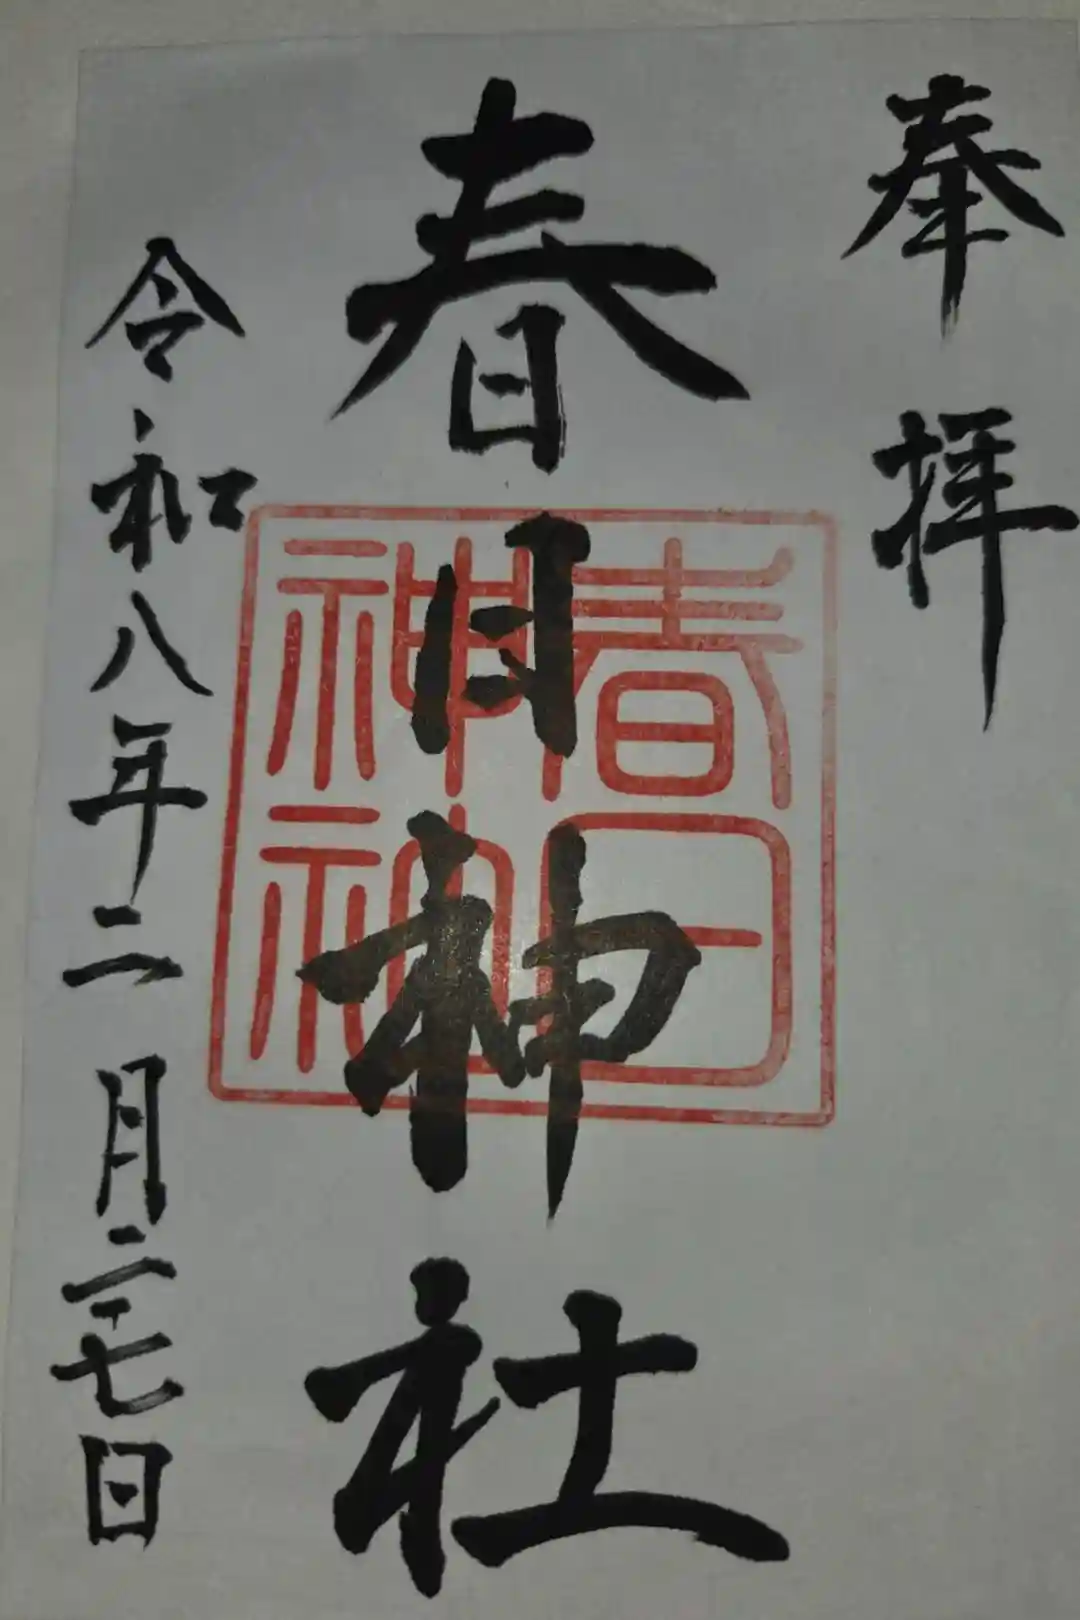 奉拝
春日神社
春日
神社
令和八年二月二十七日